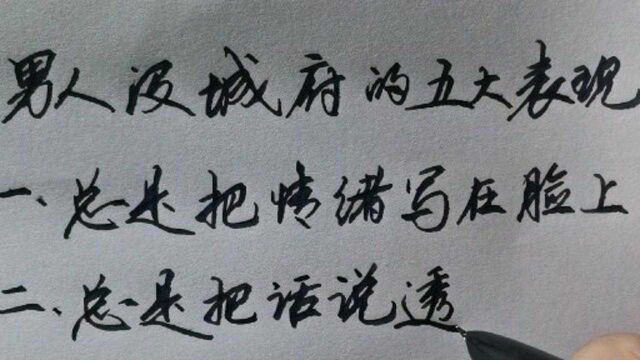 男人没城府的五大表现
一、总是把情绪写在脸上
二、总是把话说透